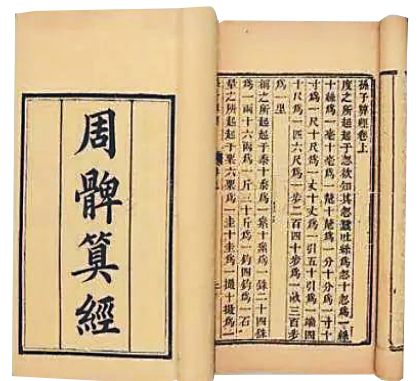 周髀算經
孫子算經卷上
度之所起起於忽欲知其忽蠶吐絲爲忽十忽爲一絲
十絲爲一毫十毫爲一氂十氂爲一分十分爲一寸十
寸爲一尺十尺爲一丈十丈爲一引五十引爲一端四
十尺爲一匹六尺爲一步二百四十步爲一畝三百步
爲一里
稱之所起起於黍十黍爲一絫十絫爲一銖二十四銖
爲一兩十六兩爲一斤三十斤爲一鈞四鈞爲一石
量之所起起於粟六粟爲一圭十圭爲一撮十撮爲一